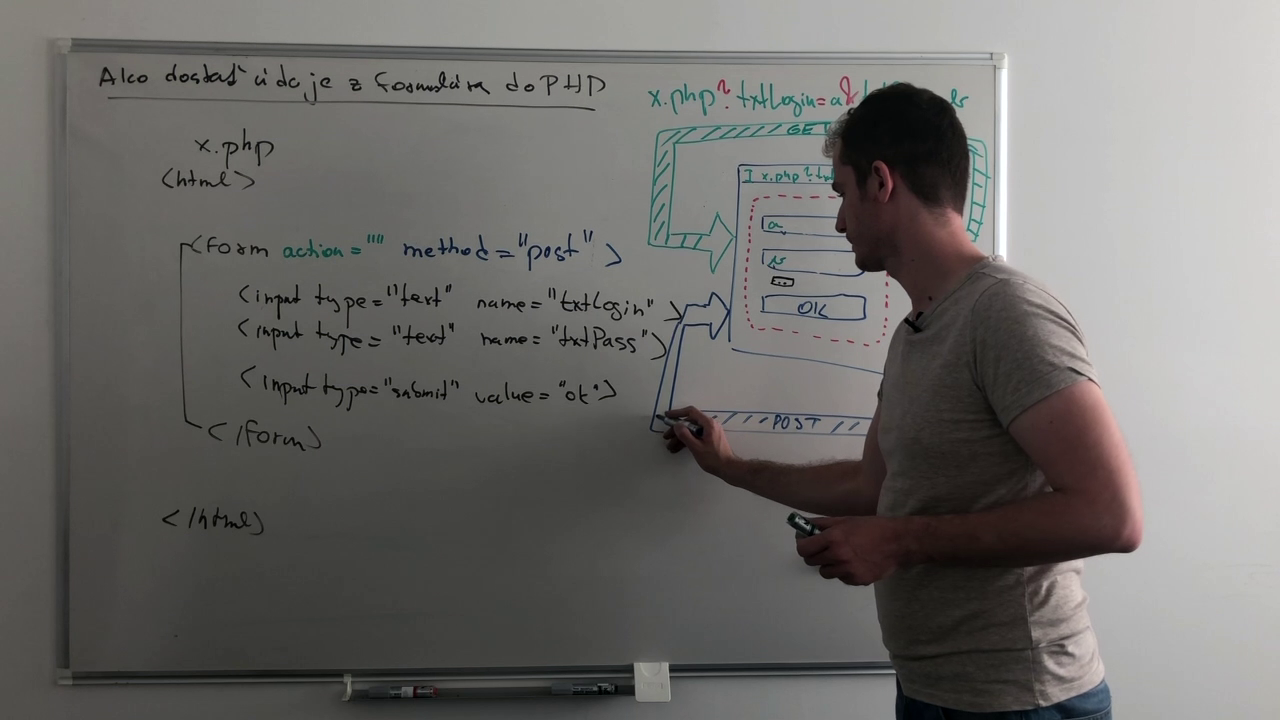 Ako dostať údaje z formulára do PHP
x.php
<html>
<form action="" method="post" >
<input type="text" name="txtLogin" >
<input type="text" name="txtPass" >
<input type="submit" value="ok">
</form>
</html>
x.php?txtLogin=a&
GET
x.php?txt
a
OK
POST